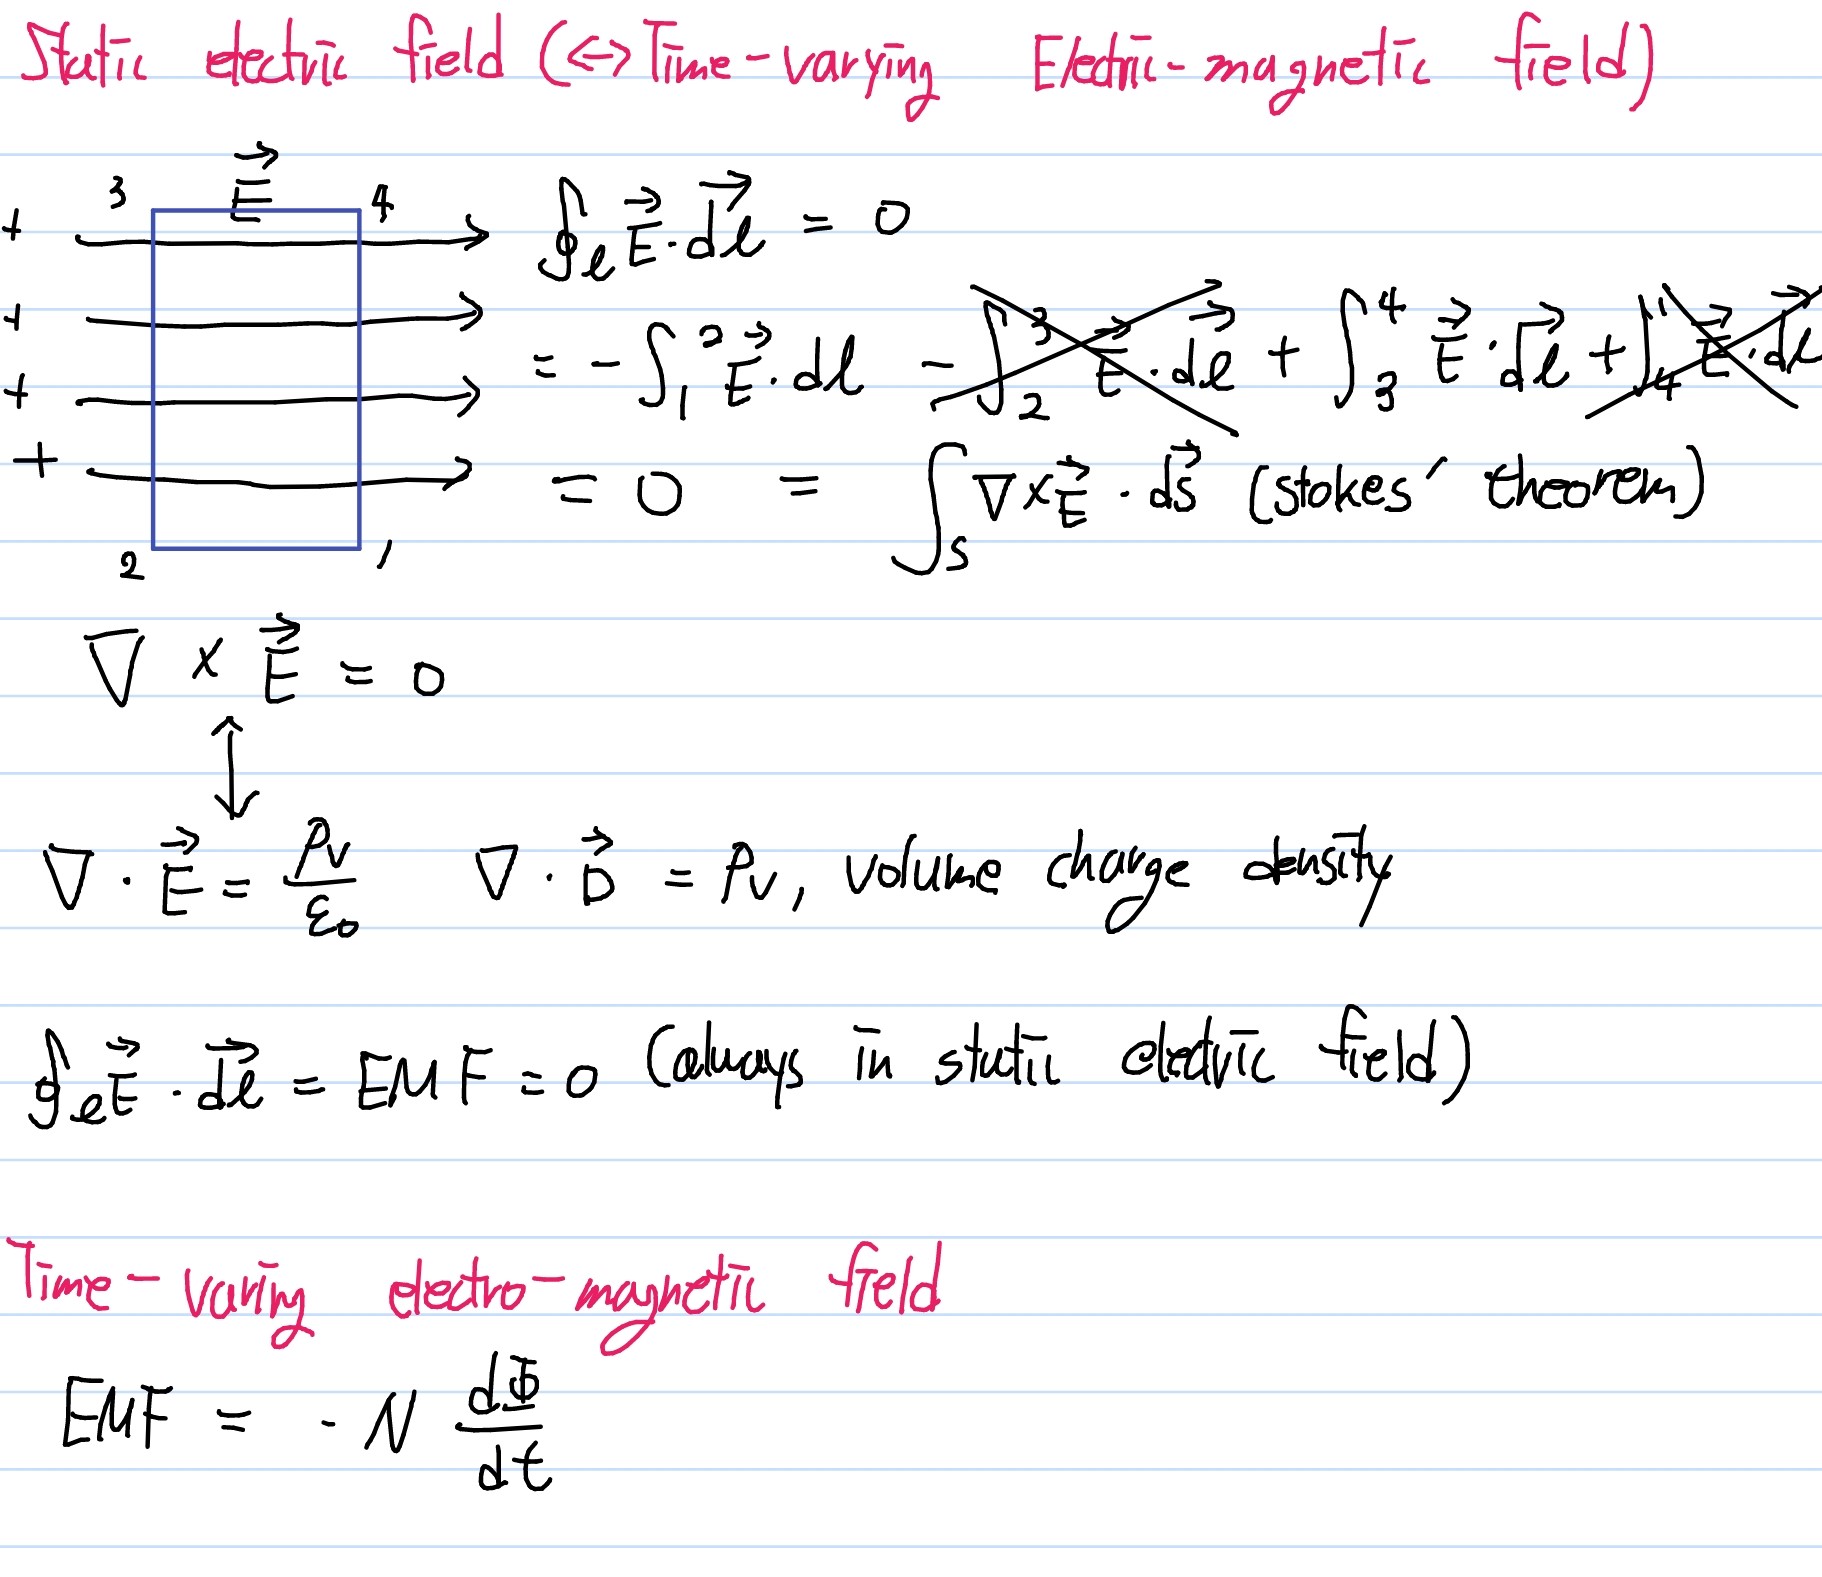 Static electric field (↔ Time-varying Electric-magnetic field)
3 E⃗ 4
+ ∮ₗ E⃗·dl⃗ = 0
+ = -∫₁² E⃗·dl - ∫₂³ E⃗·dl⃗ + ∫₃⁴ E⃗·dl⃗ + ∫₄¹ E⃗·dl⃗
+
+ = 0 = ∫ₛ ∇×E⃗·ds⃗ (stokes' theorem)
2 1
∇ × E⃗ = 0
↕
∇·E⃗ = ρv/ε₀ ∇·D⃗ = ρv, volume charge density
∮ₗ E⃗·dl⃗ = EMF = 0 (always in static electric field)
Time-varing electro-magnetic field
EMF = -N dΦ/dt